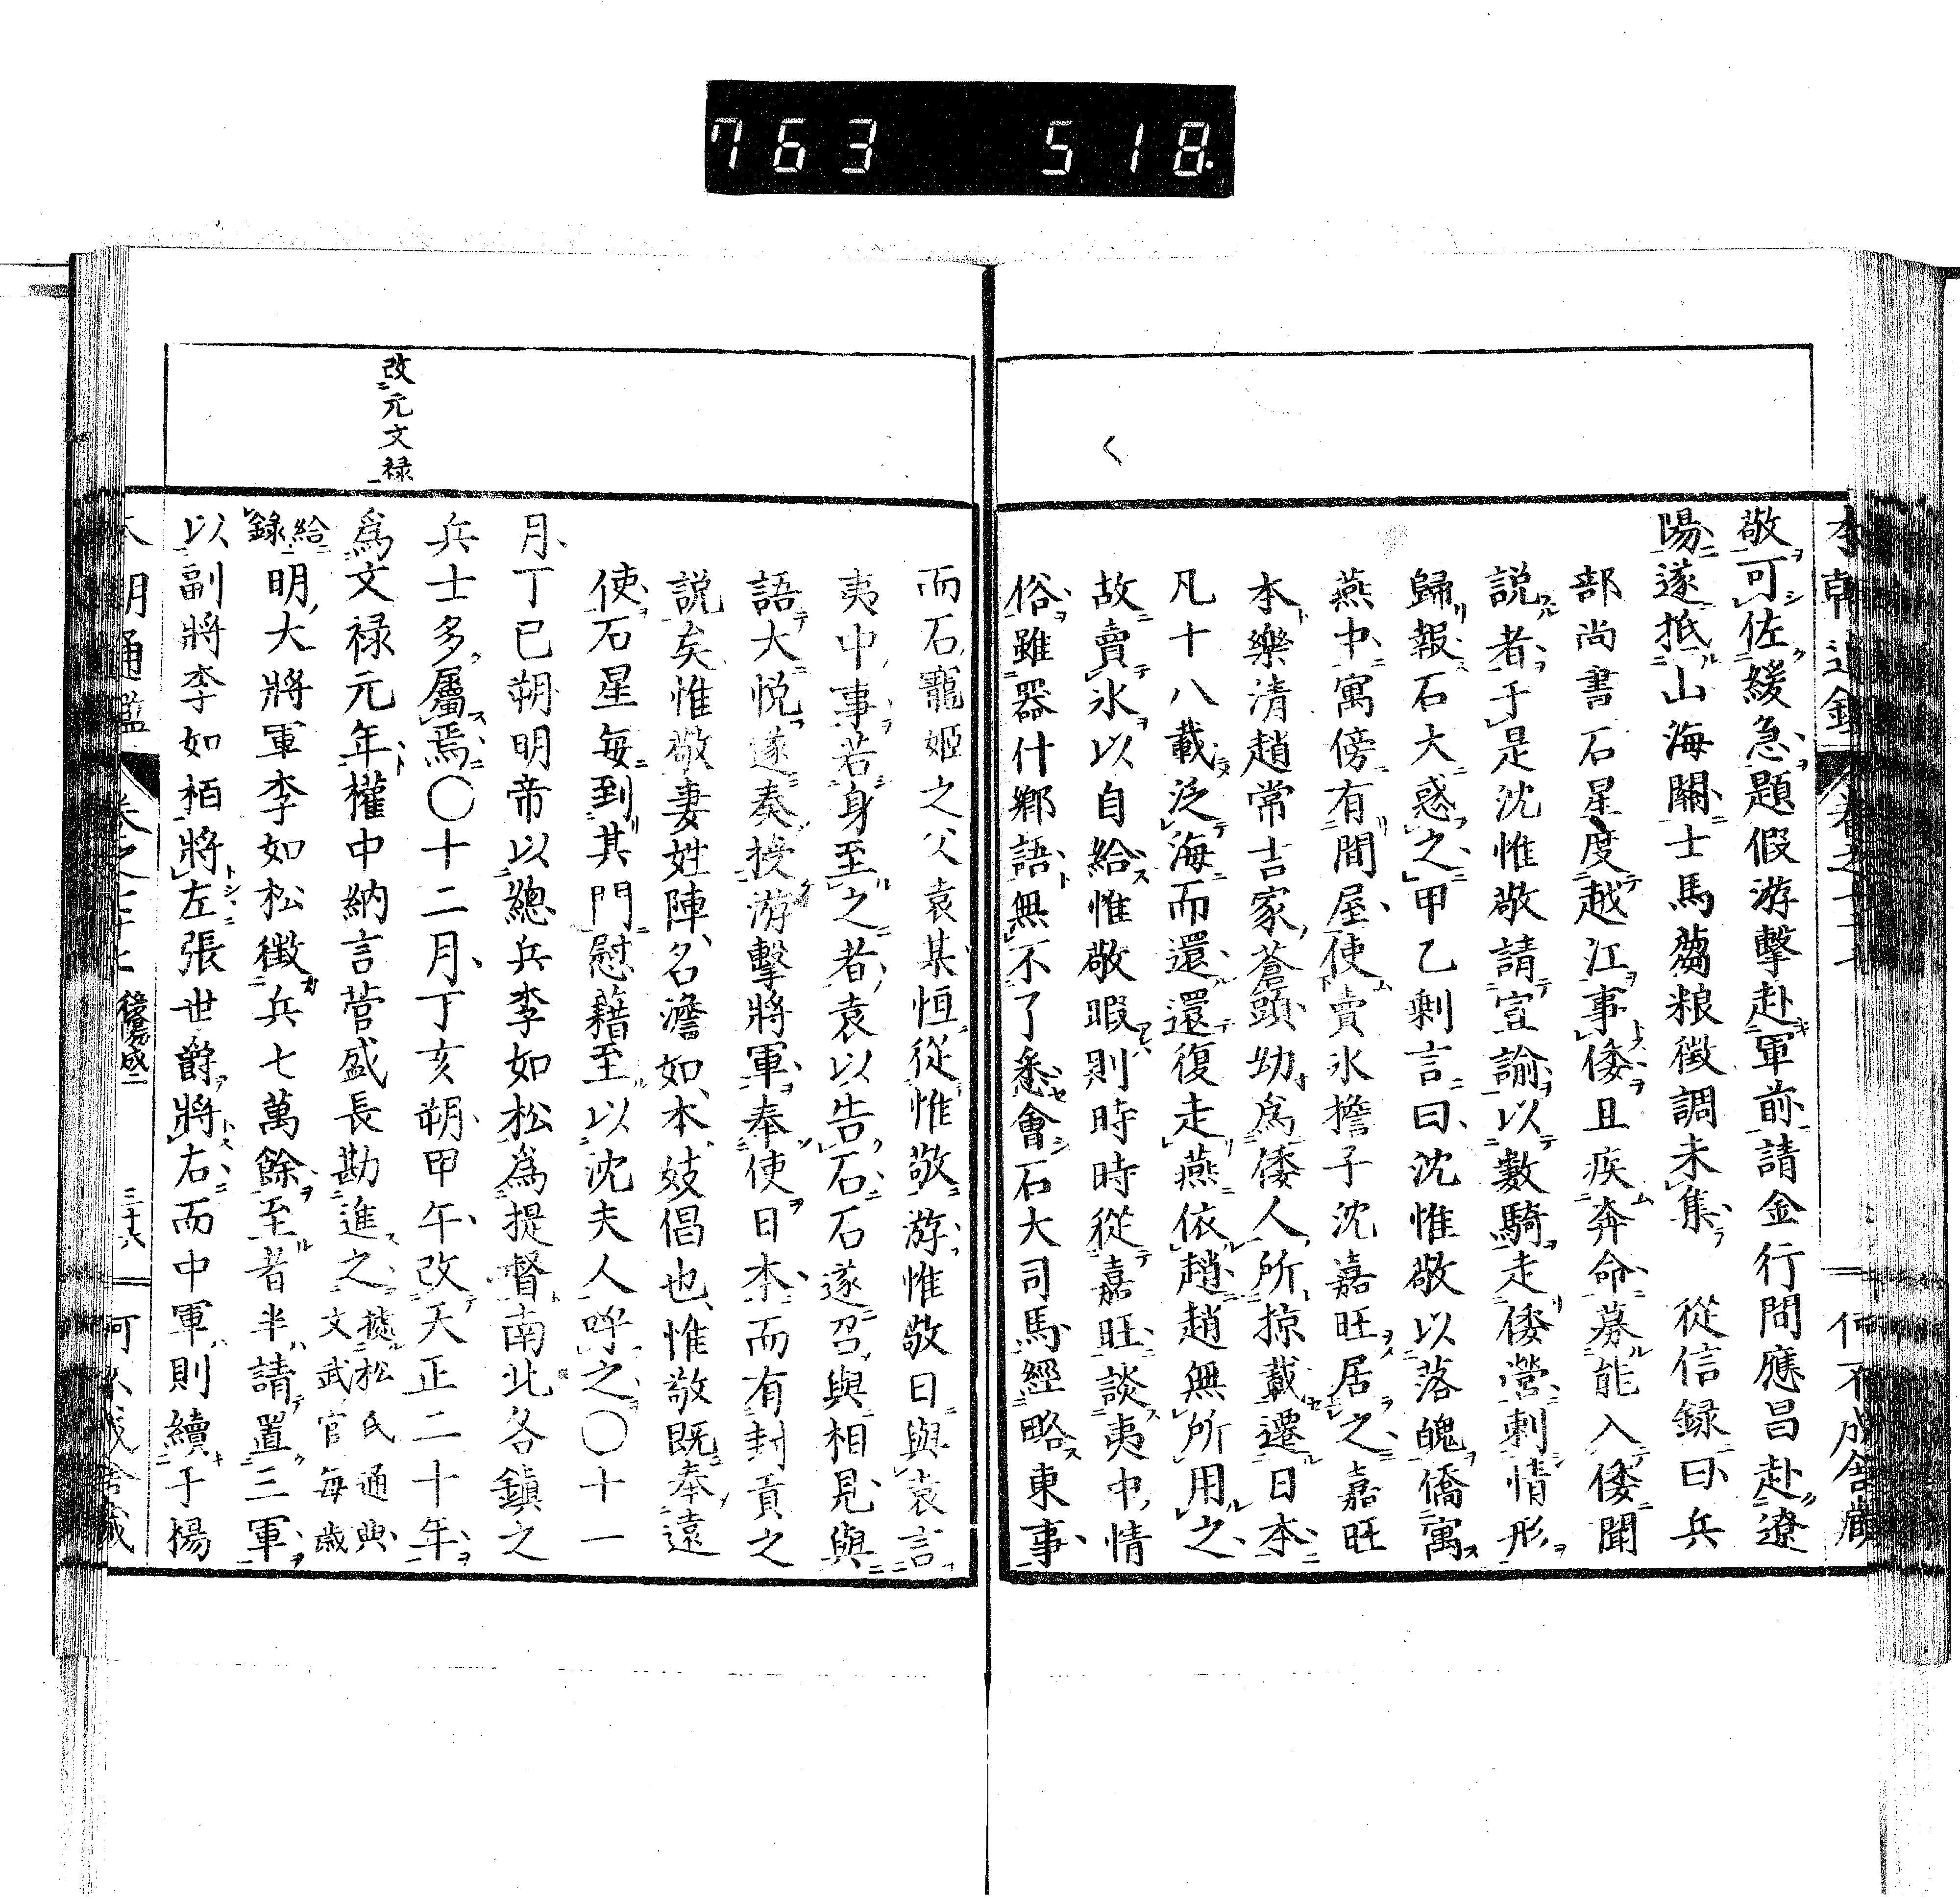 763 518.
敬可佐緩急題假游擊赴軍前請金行問應昌赴遼
陽遂抵山海關士馬蒭粮徵調未集 從信録曰兵
部尚書石星度越江事倭且疾奔命募能入倭聞
説者于是沈惟敬請宣諭以數騎走倭營刺情形
歸報石大惑之甲乙剩言曰沈惟敬以落魄僑寓
燕中寓傍有間屋使賣水擔子沈嘉旺居之嘉旺
本樂清趙常吉家蒼頭幼爲倭人所掠載還日本
凡十八載泛海而還還復走燕依趙趙無所用之
故賣水以自給惟敬暇則時時從嘉旺談夷中情
俗雖器什鄉語無不了悉會石大司馬經略東事
而石寵姬之父袁某恒從惟敬游惟敬日與袁言
夷中事若身至之者袁以告石石遂召與相見與
語大悦遂奏授游擊將軍奉使日本而有封貢之
説矣惟敬妻姓陳名澹如本妓倡也惟敬既奉遠
使石星每到其門慰藉至以沈夫人呼之〇十一
月丁巳朔明帝以總兵李如松爲提督南北各鎮之
兵士多屬焉〇十二月丁亥朔甲午改天正二十年
改元文禄
爲文禄元年權中納言菅盛長勘進之據松氏通典文武官每歲
給録明大將軍李如松徴兵七萬餘至者半請置三軍
以副將李如栢將左張世爵將右而中軍則續于楊
明通鑑 卷之 後陽成二 三十六